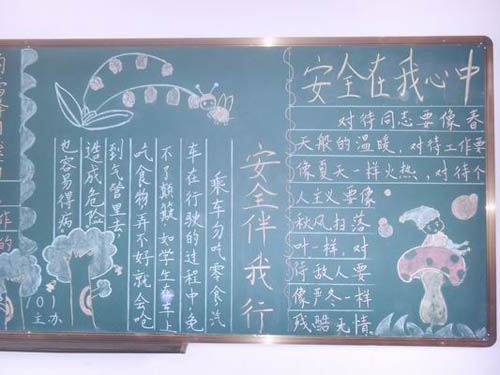 安全在我心中
对待同志要像春
天般的温暖,对待工作要
像夏天一样火热,对待个
人主义要像
秋风扫落
叶一样,对
待敌人要
像严冬一样
残酷无情
安全伴我行
乘车勿吃零食汽
车在行驶的过程中免
不了颠簸,如学生在车上
吃食物弄不好就会呛
到气管里去
造成危险
也容易得病
101
主办
的